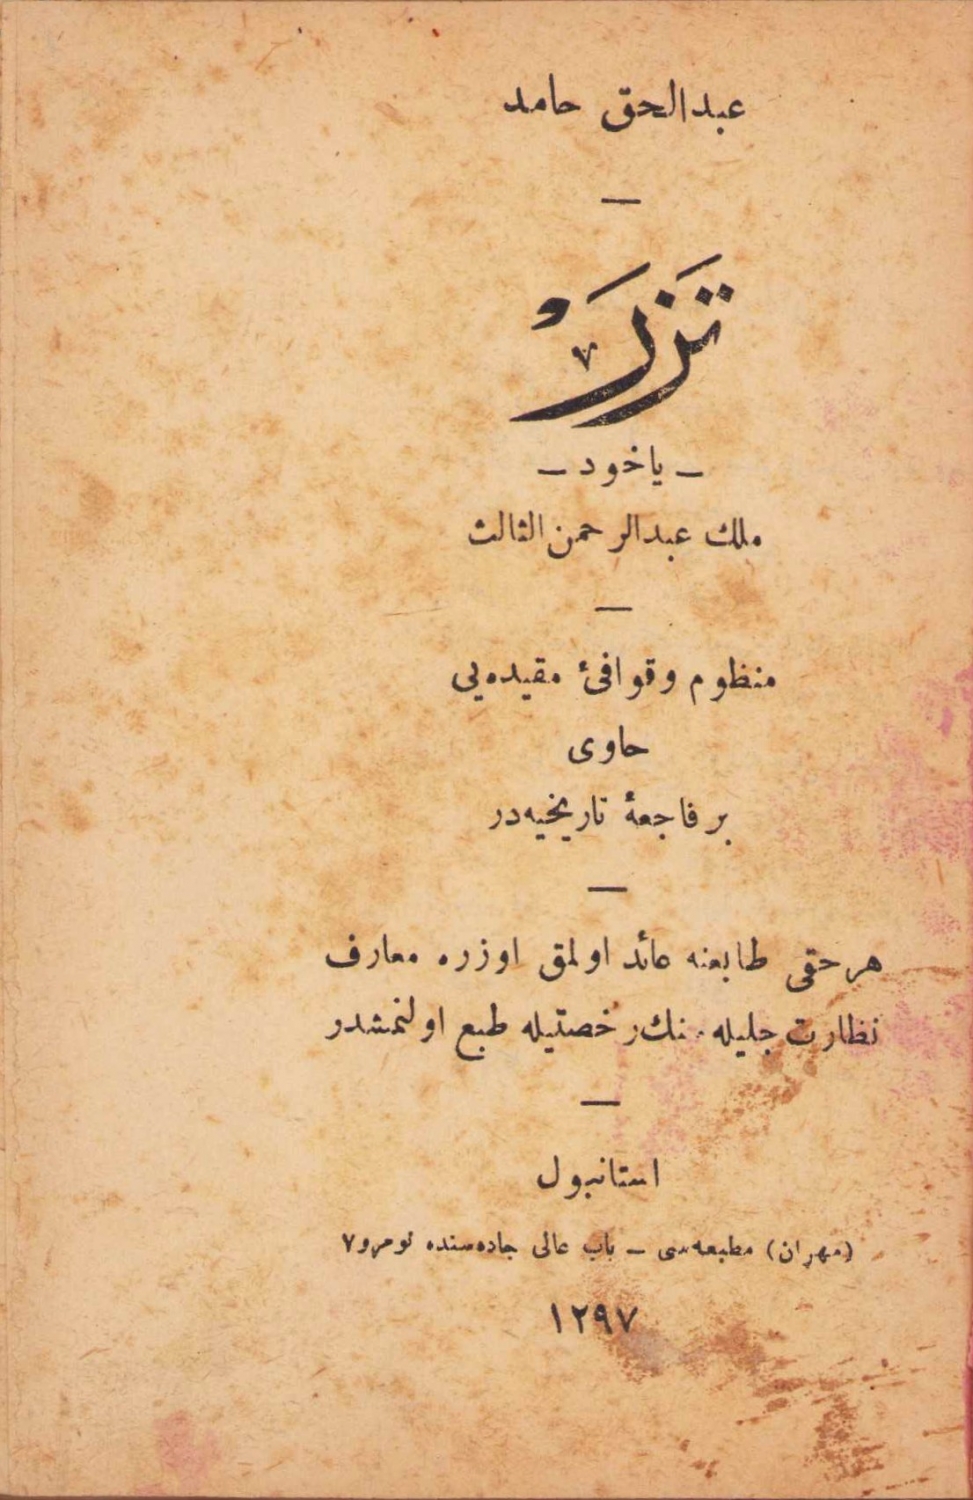 عبدالحق حامد
تَزَرْ
ـ ياخود ـ
ملك عبدالرحمن الثالث
منظوم وقوافئ مقيده‌يى
حاوى
بر فاجعۀ تاريخيه‌در
هر حقى طابعنه عائد اولمق اوزره معارف
نظارت جليله‌ نك رخصتيله طبع اولنمشدر
استانبول
(مهران) مطبعه‌سى ـ باب عالى جاده‌سنده نومرو ٧
١٢٩٧